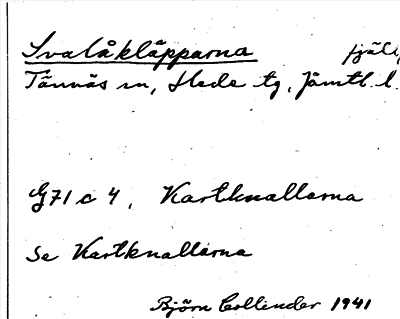 Svalåkläpparna fjäll,
Tännäs sn, Hede tg, Jämtl. l.
G71 c 4, Kartknallarna
Se Kartknallarna
Björn Collinder 1941